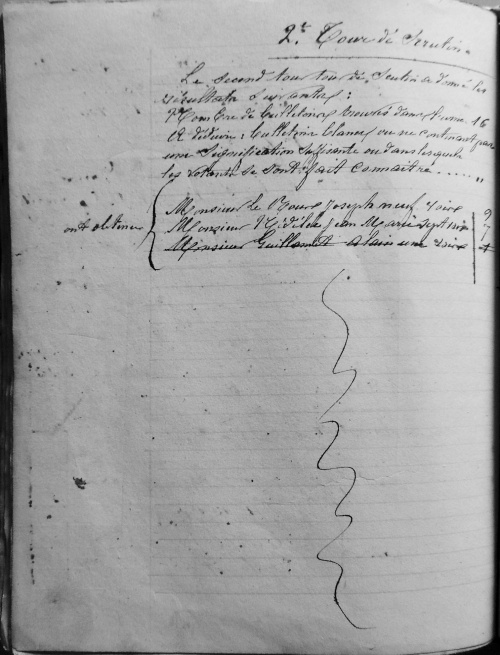 2e Tour de Scrutin
Le second tour tour de Scutin a donné les
résultats suivantes :
Nombre de bulletons trouvés dans l'urne 16
A déduire : bulletins blancs ou ne contenant pas
une Signification suffisante ou dans lesquels
les votants se sont fait connaitre ..... "
ont obtenu
Monsieur le Bour Joseph neuf voix 9
Monsieur Jean Marie sept voix 7
Monsieur Guillamet alain une voix 1